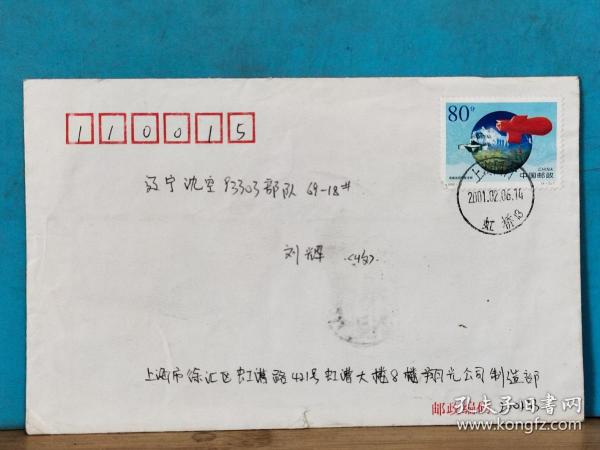 110015
80分
CHINA
中国邮政
上海
2001.02.06.14
虹桥
辽宁沈空93303部队69-18#
刘辉 <收>
上海市徐汇区虹漕路421号虹漕大楼8楼翔光公司制造部
邮政编码
孔夫子旧书网
www.kongfz.com